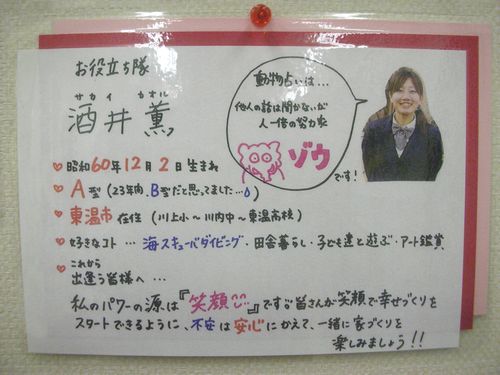 お役立ち隊
サカイ カオル
酒井 薫
動物占いは…
他人の話は聞かないが
人一倍の努力家
ゾウ
です!
昭和60年12月2日生まれ
A型(23年間、B型だと思ってました…)
東温市在住(川上小〜川内中〜東温高校)
好きなコト…海・スキューバダイビング・田舎暮らし・子ども達と遊ぶ・アート鑑賞
これから
出逢う皆様へ…
私のパワーの源は『笑顔』です。皆さんが笑顔で幸せづくりを
スタートできるように、不安は安心にかえて、一緒に家づくりを
楽しみましょう!!